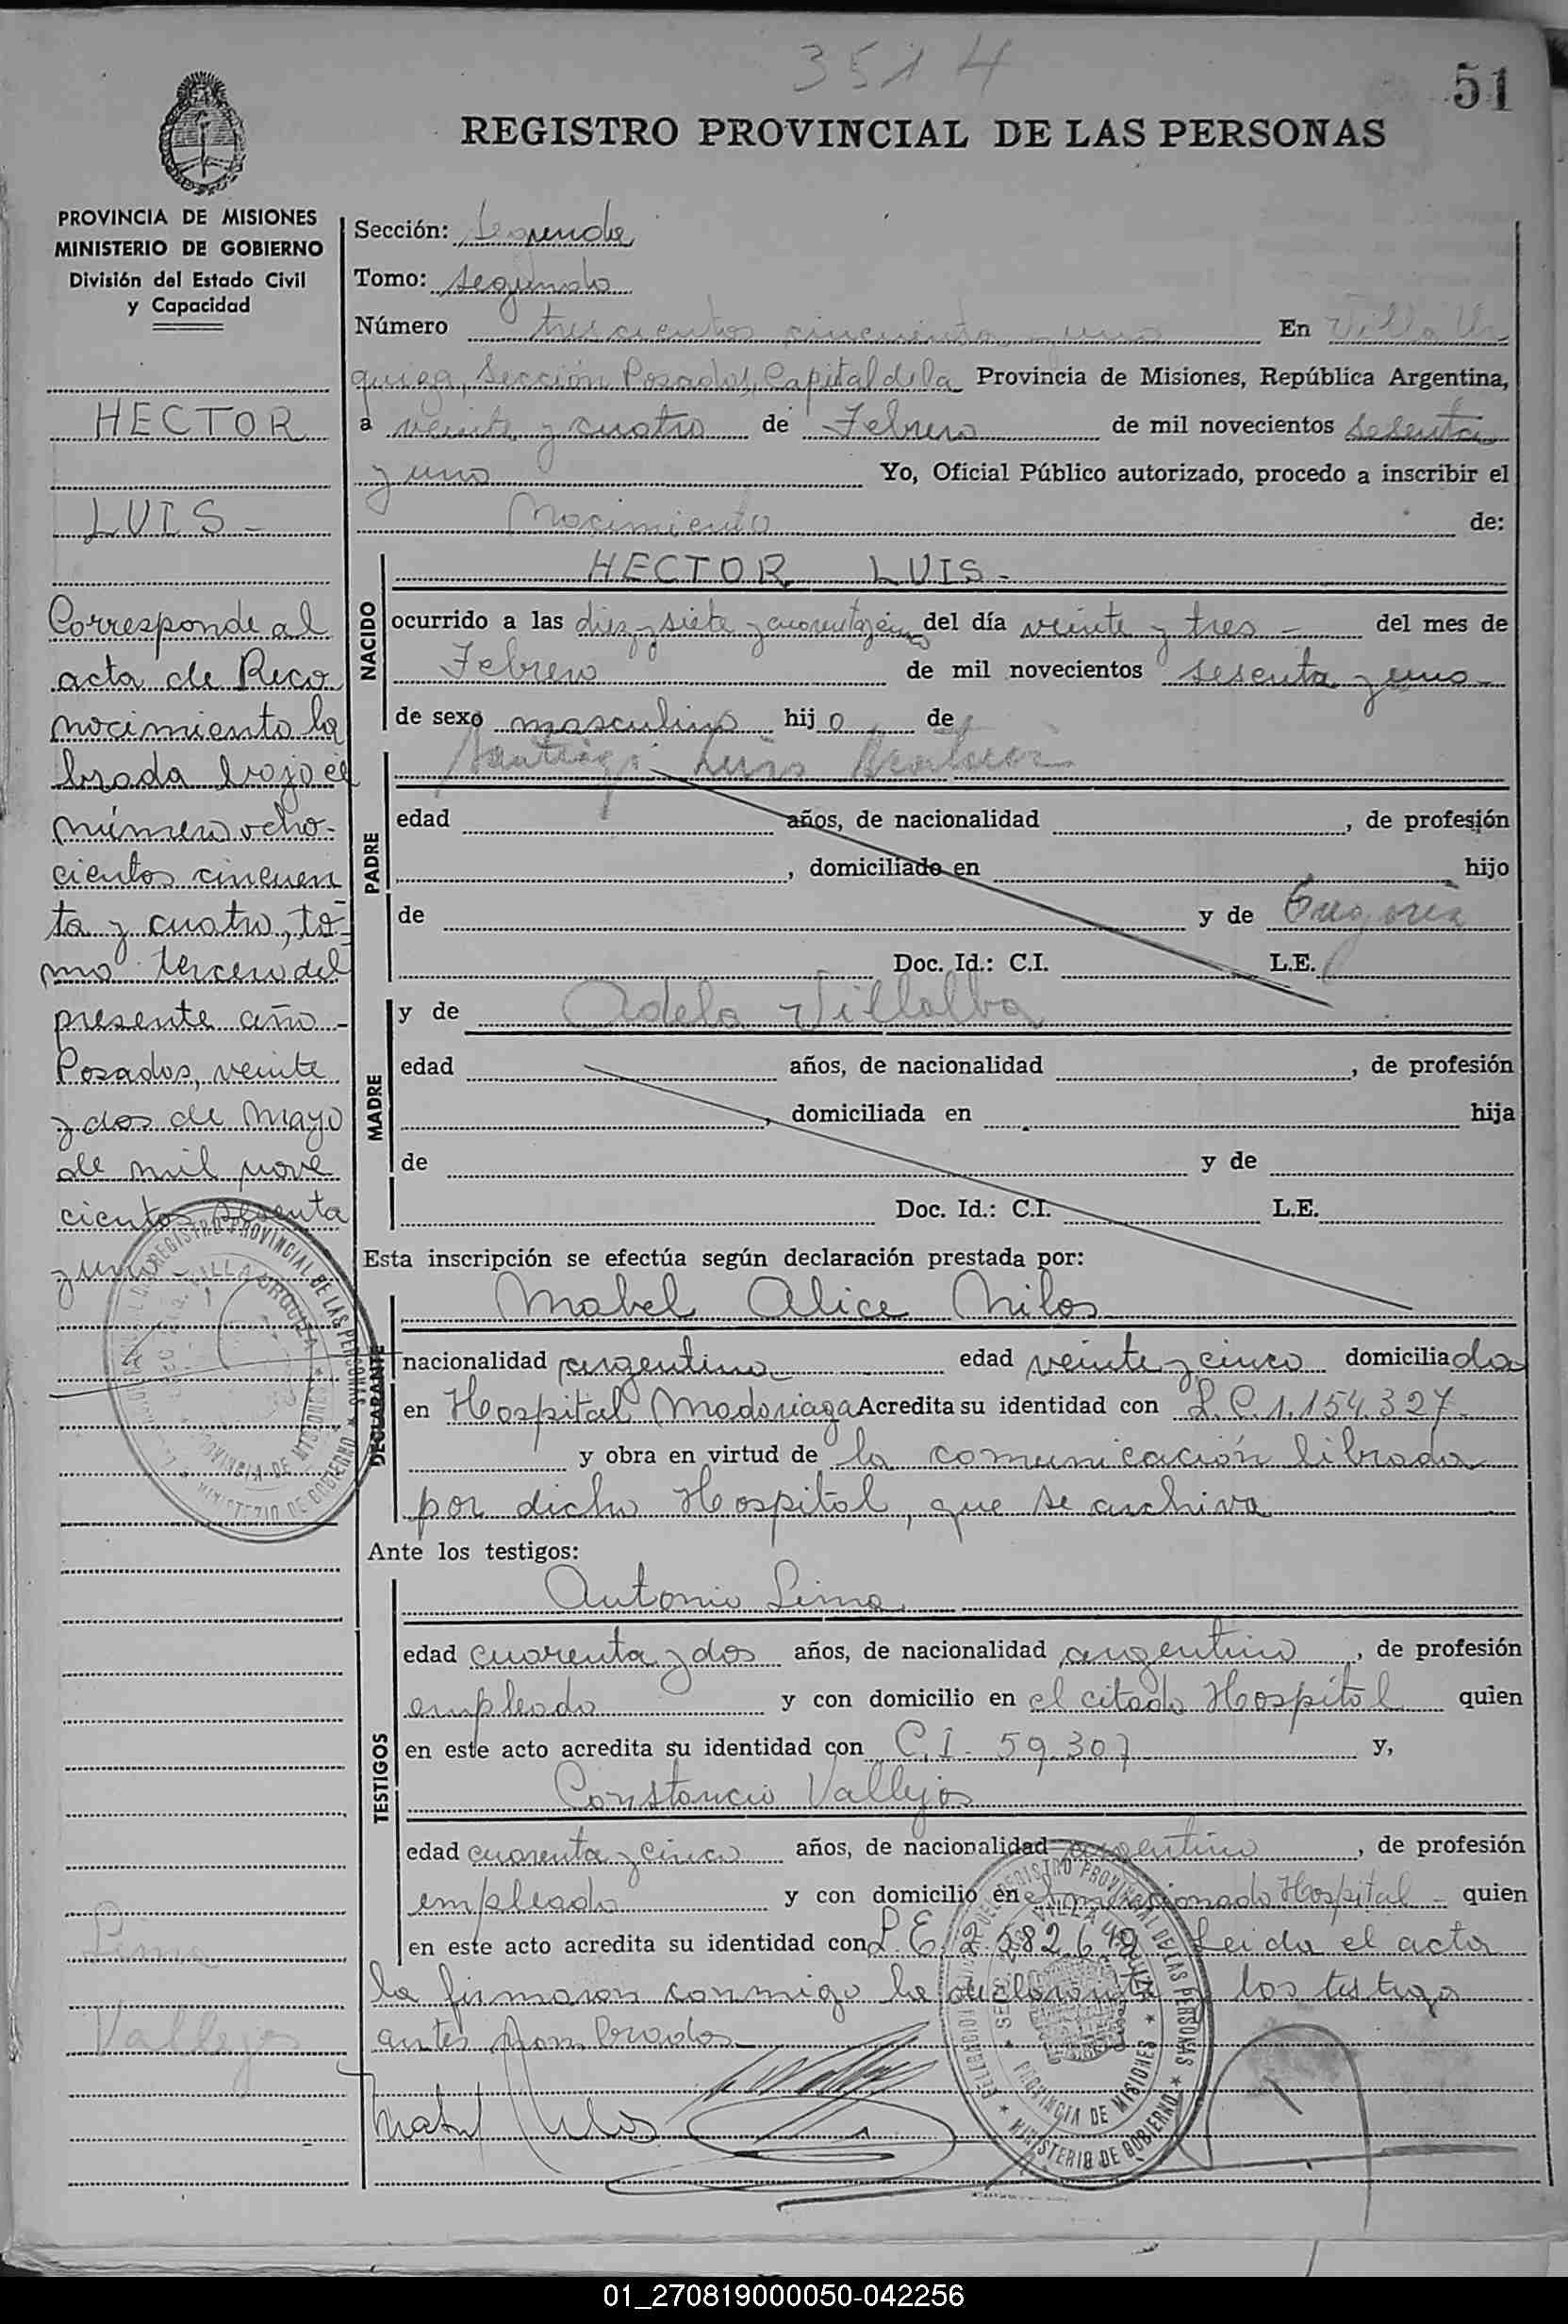 3514
51
REGISTRO PROVINCIAL DE LAS PERSONAS
PROVINCIA DE MISIONES
MINISTERIO DE GOBIERNO
División del Estado Civil
y Capacidad
HECTOR
LUIS -
Corresponde al
acta de Reco
nocimiento la
brada bajo el
número ocho-
cientos cincuen
ta y cuatro, to-
mo tercero del
presente año -
Posadas, veinte
y dos de Mayo
de mil nove
cientos sesenta
y uno -
Lima
Vallejos
Sección: Segunda
Tomo: segundo
Número trescientos cincuenta y uno En Villa Ur
quiza, Sección Posadas, Capital de la Provincia de Misiones, República Argentina,
a veinte y cuatro de Febrero de mil novecientos sesenta
y uno Yo, Oficial Público autorizado, procedo a inscribir el
Nacimiento de:
NACIDO
HECTOR LUIS -
ocurrido a las diez y siete y cuarenta y cinco del día veinte y tres - del mes de
Febrero de mil novecientos sesenta y uno -
de sexo masculino hijo de
PADRE
Santiago Luis
edad años, de nacionalidad , de profesión
, domiciliado en hijo
de y de
Doc. Id.: C.I. L.E.
MADRE
y de Adela Villalba
edad años, de nacionalidad , de profesión
, domiciliada en hija
de y de
Doc. Id.: C.I. L.E.
Esta inscripción se efectúa según declaración prestada por:
DECLARANTE
Mabel Alice Milos
nacionalidad argentina edad veinte y cinco domiciliada
en Hospital Madariaga Acredita su identidad con L.C. 1.154.327
y obra en virtud de la comunicación librada
por dicho Hospital, que se archiva
Ante los testigos:
TESTIGOS
Antonio Lima
edad cuarenta y dos años, de nacionalidad argentino , de profesión
empleado y con domicilio en el citado Hospital quien
en este acto acredita su identidad con C.I. 59.307 y,
Constancio Vallejos
edad cuarenta y cinco años, de nacionalidad argentino , de profesión
empleado y con domicilio en el mencionado Hospital - quien
en este acto acredita su identidad con L.E. 2.582.6 Leida el acta
la firmaron conmigo la declarante y los testigo
antes nombrados
Mabel Milos
REGISTRO PROVINCIAL DE LAS PERSONAS
VILLA URQUIZA
PROVINCIA DE MISIONES
MINISTERIO DE GOBIERNO
DELEGACION DEL REGISTRO PROVINCIAL DE LAS PERSONAS
VILLA URQUIZA
PROVINCIA DE MISIONES
MINISTERIO DE GOBIERNO
01_270819000050-042256